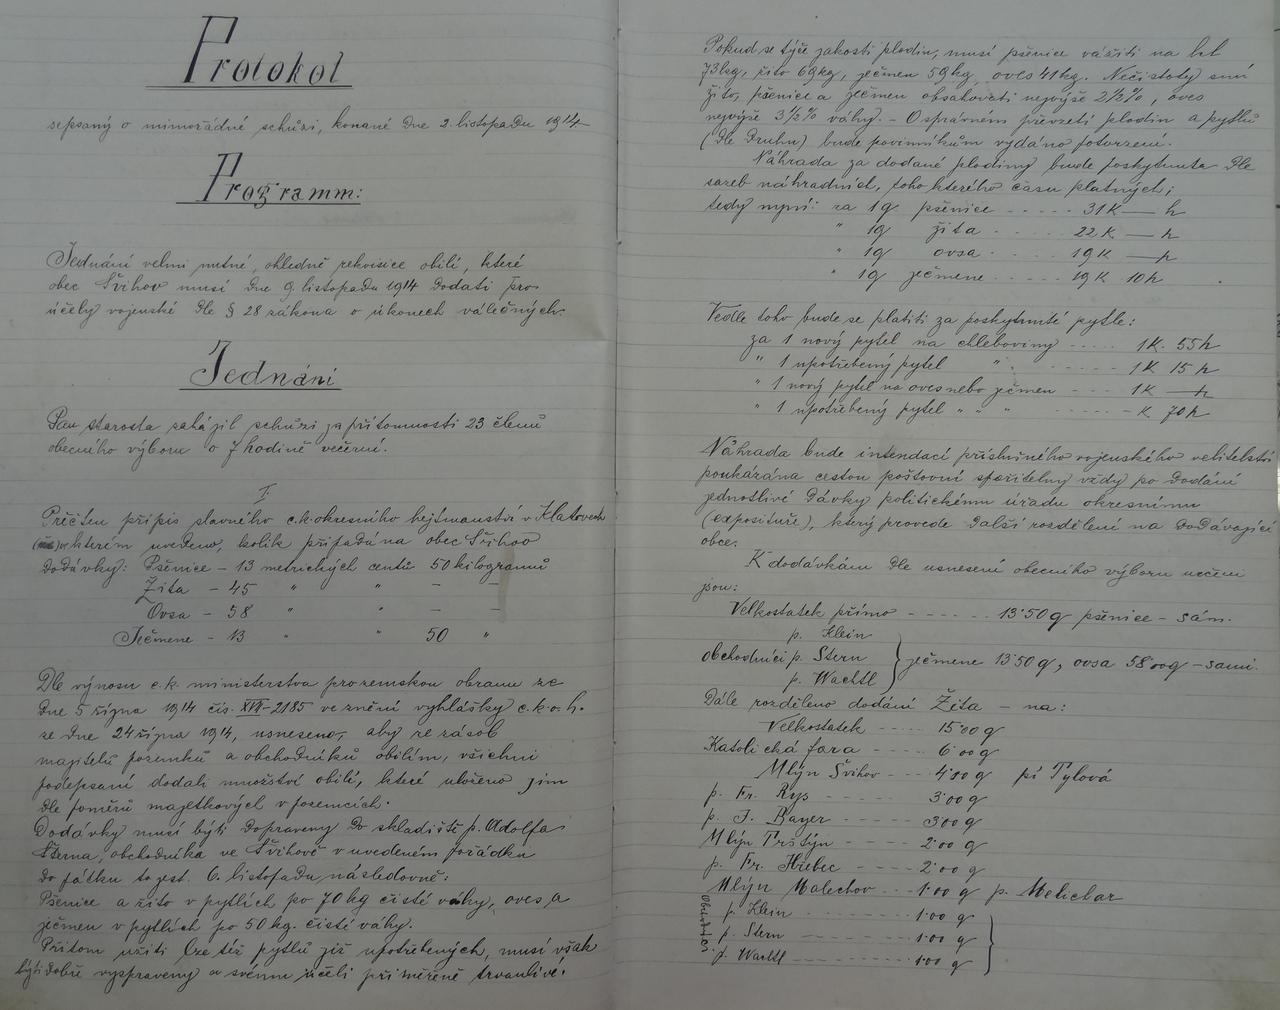 Protokol
sepsaný o mimořádné schůzi, konané dne 2. listopadu 1914.–
Programm:
Jednání velmi nutné, ohledně rekvisice obilí, které
obec Švihov musí dne 9. listopadu 1914 dodati pro
účely vojenské dle § 28 zákona o úkonech válečných.
Jednání
Pan starosta zahájil schůzi za přítomnosti 23 členů
obecního výboru o 7 hodině večerní.
I.
Přečten přípis slavného c.k. okresního hejtmanství v Klatovech
v kterém uvedeno, kolik připadá na obec Švihov
dodávky: Pšenice – 13 metrických centů 50 kilogramů
Žita – 45 " " – –
Ovsa – 58 " " – –
Ječmene – 13 " " 50 "
Dle výnosu c.k. ministerstva pro zemskou obranu ze
dne 5 října 1914 čís. XVII-2185 ve znění vyhlášky c.k.o.h.
ze dne 24 října 1914, usneseno, aby ze zásob
majitelů pozemků a obchodníků obilím, všichni
podepsaní dodali množství obilí, které uloženo jim
dle poměrů majetkových v pozemcích.
Dodávky musí býti dopraveny do skladiště p. Adolfa
Sterna, obchodníka ve Švihově v uvedeném pořádku
do pátku to jest. 6. listopadu následovně:
Pšenice a žito v pytlích po 70 kg čisté váhy, oves a
ječmen v pytlích po 50 kg. čisté váhy.
Přitom užiti lze též pytlů již upotřebených, musí však
býti dobře vyspraveny a svému účeli přiměřeně trvanlivé.
Pokud se týče jakosti plodin, musí pšenice vážiti na hl
73 kg, žito 69 kg, ječmen 59 kg, oves 41 kg. Nečistoty smí
žito, pšenice a ječmen obsahovati nejvýše 2½%, oves
nejvýše 3½% váhy. – O správném převzetí plodin a pytlů
(dle druhu) bude povinníkům vydáno potvrzení.
Náhrada za dodané plodiny bude poskytnuta dle
sazeb náhradních, toho kterého času platných;
tedy nyní: za 1q pšenice ----- 31 K — h
" 1q žita ----- 22 K — h
" 1q ovsa ----- 19 K — h
" 1q ječmene ----- 19 K 10 h
Vedle toho bude se platiti za poskytnuté pytle:
za 1 nový pytel na chleboviny ----- 1 K. 55 h
" 1 upotřebený pytel " ----- 1 K 15 h
" 1 nový pytel na oves nebo ječmen --- 1 K — h
" 1 upotřebený pytel " " " ----- – K 70 h
Náhrada bude intendací příslušného vojenského velitelství
poukázána cestou poštovní spořitelny vždy po dodání
jednotlivé dávky politickému úřadu okresnímu
(expositůře), který provede další rozdělení na dodávající
obce.
K dodávkám dle usnesení obecního výboru určeni
jsou:
Velkostatek přímo ----- 13·50 q pšenice – sám.
p. Klein
obchodníci p. Stern } ječmene 13·50 q, ovsa 58·00 q – sami.
p. Wachtl
Dále rozděleno dodání Žita – na:
Velkostatek ---- 15·00 q
Katolická fara ---- 6·00 q
Mlýn Švihov --- 4·00 q pí Tylová
p. Fr. Rys ------ 3·00 q
p. J. Bayer ----- 3·00 q
Mlýn Trštýn ---- 2·00 q
p. Fr. Hřebec ---- 2·00 q
Mlýn Malechov -- 1·00 q p. Melichar
Obchodníci
p. Klein ------ 1·00 q
p. Stern ------ 1·00 q
p. Wachtl ------ 1·00 q